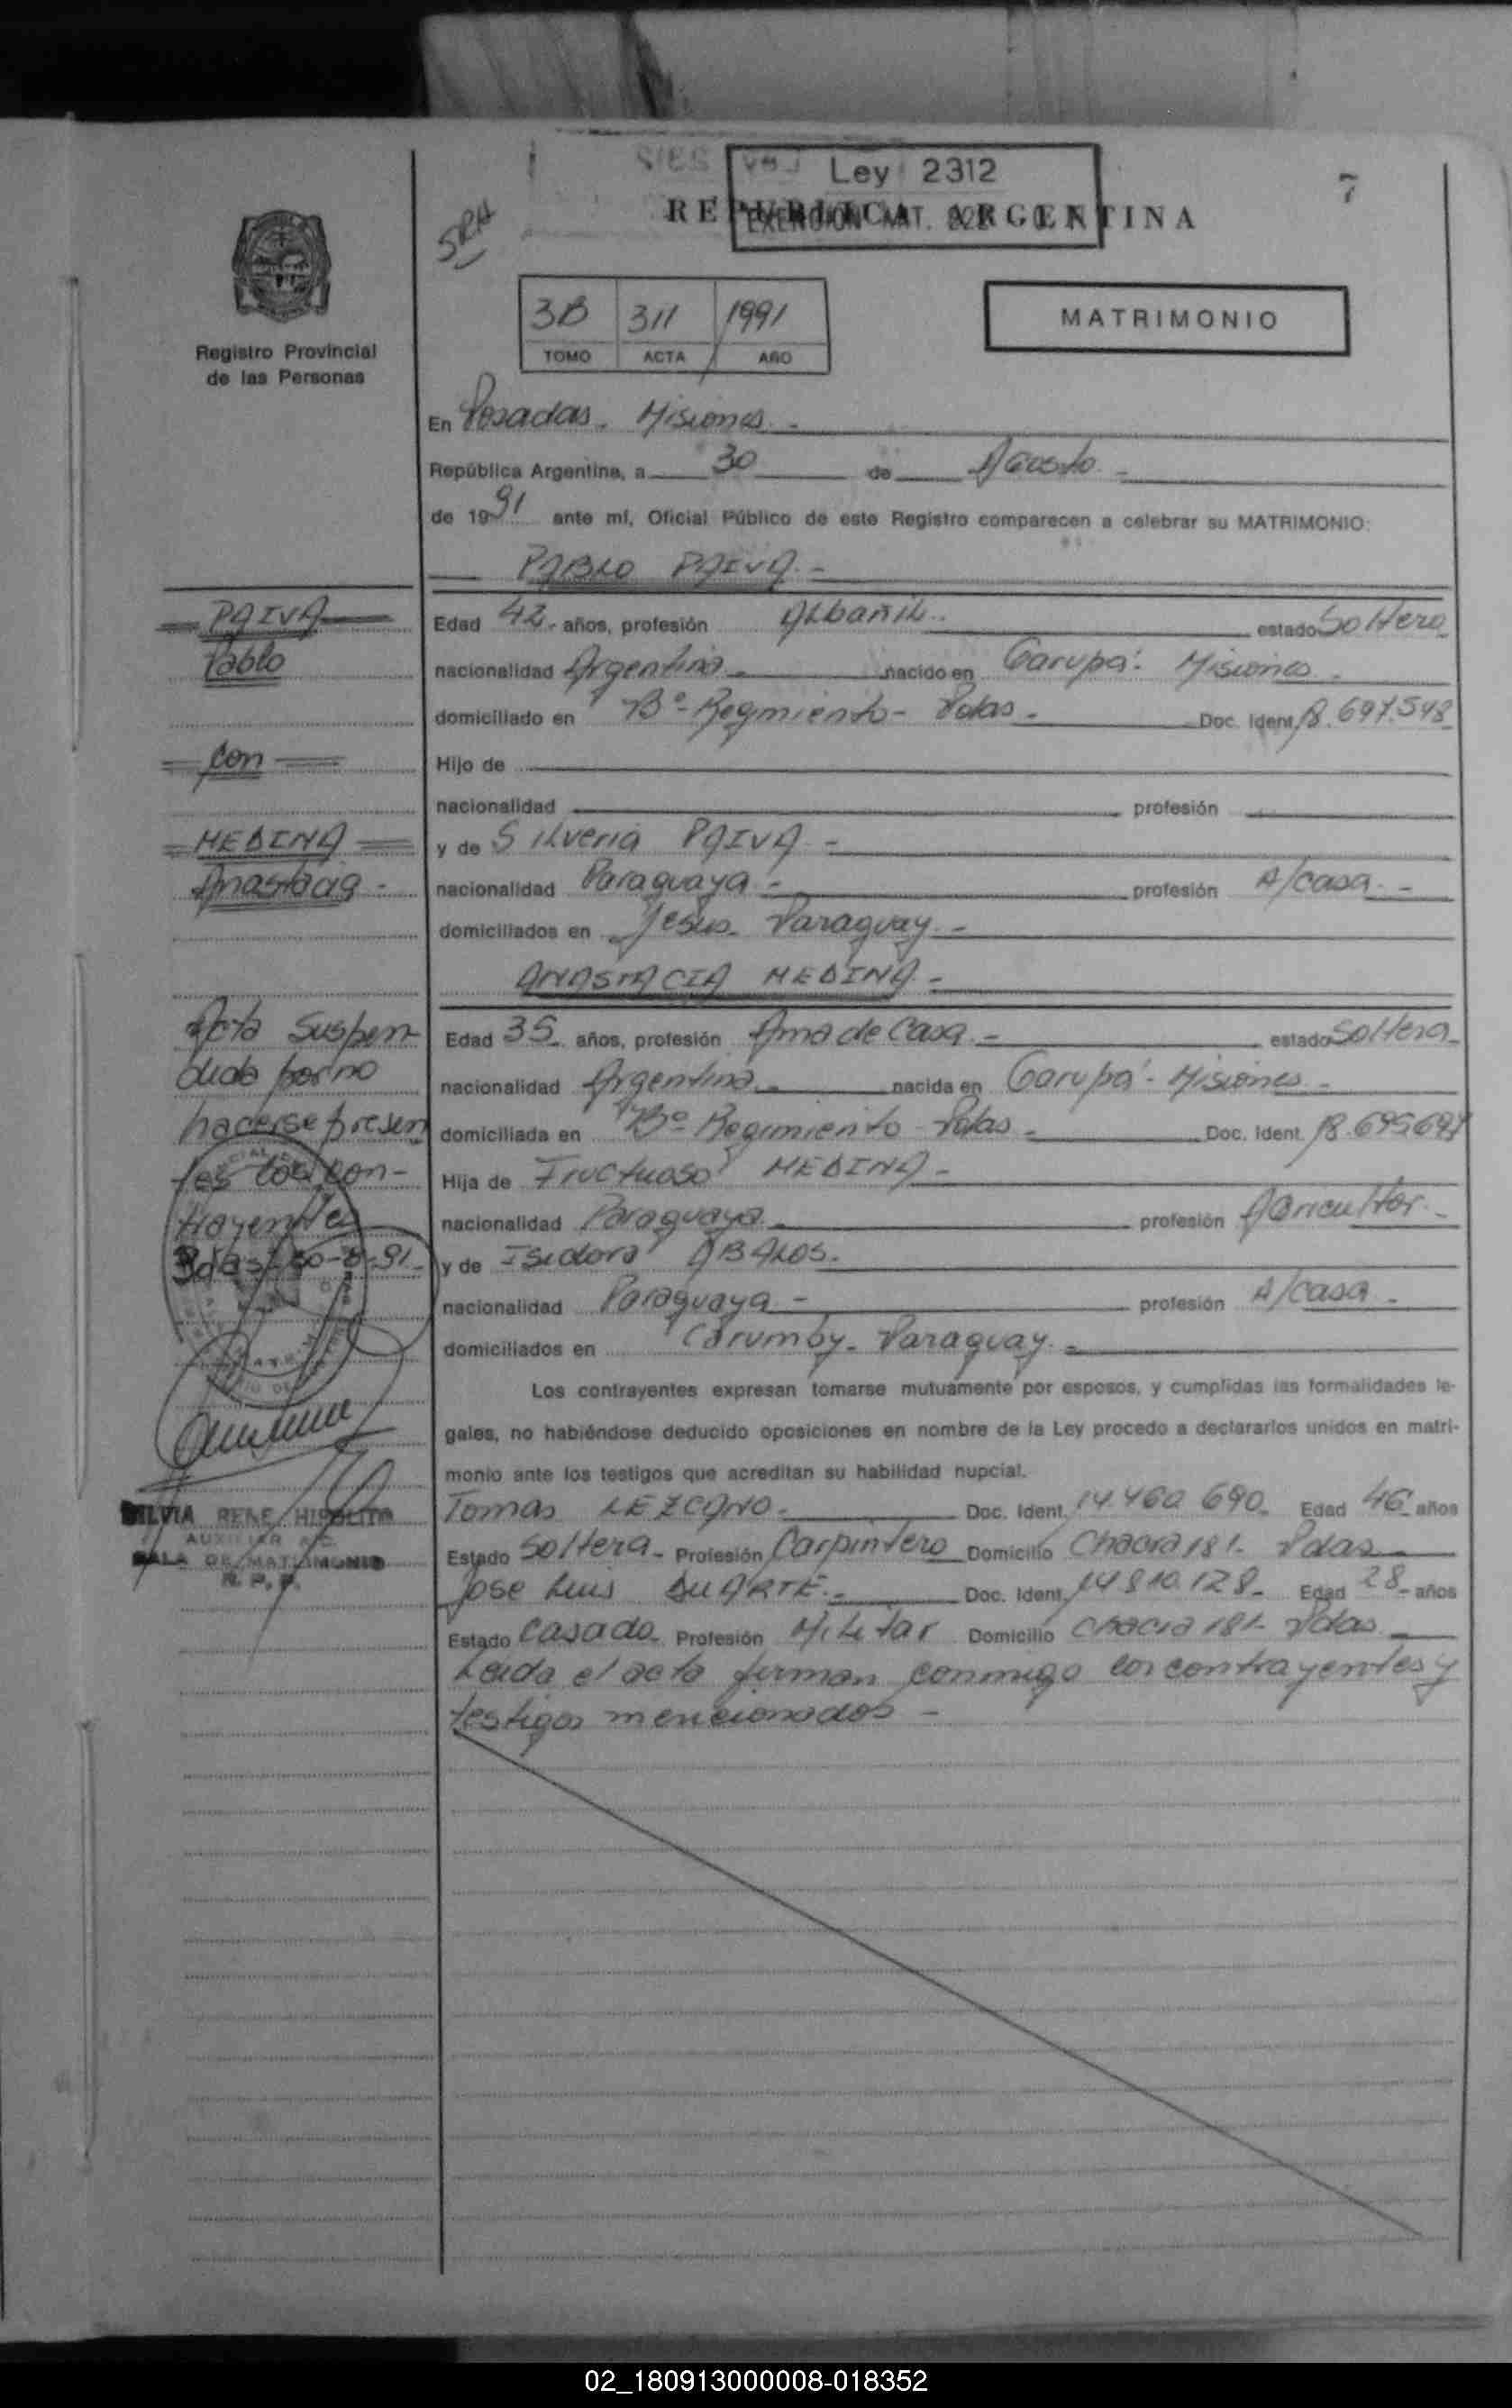 Ley 2312
REPUBLICA ARGENTINA
7
SRA
3B 311 1991
TOMO ACTA AÑO
MATRIMONIO
Registro Provincial
de las Personas
En Posadas. Misiones.-
República Argentina, a 30 de Agosto.-
de 1991 ante mí, Oficial Público de este Registro comparecen a celebrar su MATRIMONIO:
PABLO PAIVA.-
PAIVA
Pablo
con
MEDINA
Anastacia-
Edad 42- años, profesión Albañil.. estado Soltero
nacionalidad Argentina- nacido en Garupá- Misiones.
domiciliado en Bº-Regimiento- Pdas- Doc. Ident. 18.697.548
Hijo de
nacionalidad profesión
y de Silveria PAIVA-
nacionalidad Paraguaya- profesión A/casa.-
domiciliados en Jesus- Paraguay.-
ANASTACIA MEDINA.-
Edad 35- años, profesión Ama de Casa.- estado Soltera-
nacionalidad Argentina- nacida en Garupá- Misiones-
domiciliada en Bº-Regimiento- Pdas- Doc. Ident.
Hija de Fructuoso MEDINA-
nacionalidad Paraguaya- profesión Agricultor.-
y de Isidora ABALOS.
nacionalidad Paraguaya- profesión A/casa-
domiciliados en Corumby- Paraguay.-
Acta Suspen
dida por no
hacerse presen
tes los con-
trayentes
Pdas, 30-8-91.
SILVIA RENE HIPOLITO
AUXILIAR
SALA DE MATRIMONIO
R. P. P.
Los contrayentes expresan tomarse mutuamente por esposos, y cumplidas las formalidades le-
gales, no habiéndose deducido oposiciones en nombre de la Ley procedo a declararlos unidos en matri-
monio ante los testigos que acreditan su habilidad nupcial.
Tomas LEZCANO- Doc. Ident. 14.460.690- Edad 46 años
Estado Soltera- Profesión Carpintero Domicilio Chacra 181- Pdas
Jose Luis DUARTE.- Doc. Ident. 14.810.128- Edad 28- años
Estado Casado- Profesión Militar Domicilio Chacra 181- Pdas
Leida el acta firman conmigo los contrayentes y
testigos mencionados-
02_180913000008-018352